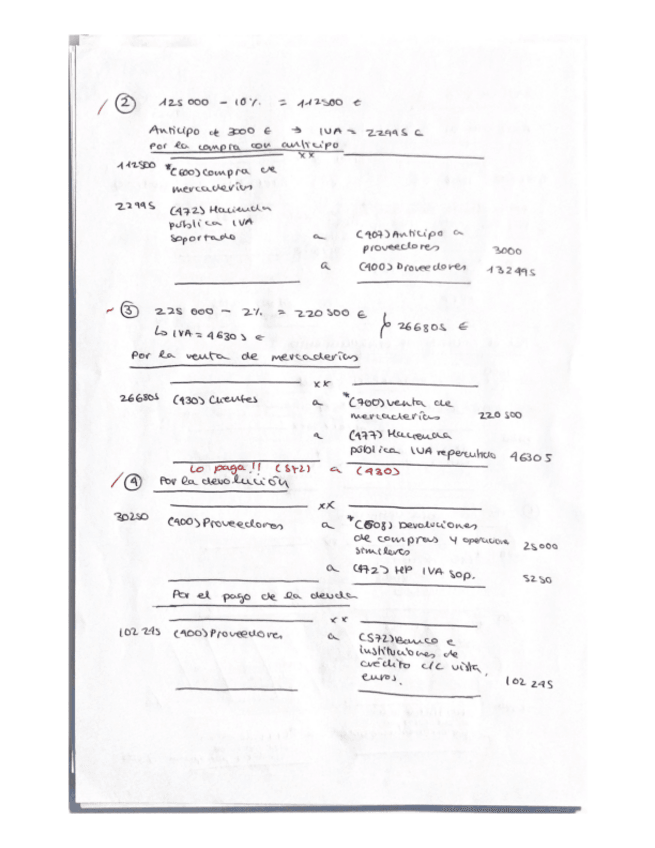 ② 125 000 - 10% = 112500 €
Anticipo de 3000 € → IVA = 22995 €
Por la compra con anticipo
xx
112500 *(600) Compra de
mercaderías
22995 (472) Hacienda
pública IVA
soportado a (407) Anticipo a
proveedores 3000
a (400) Proveedores 132495
③ 225 000 - 2% = 220 500 €
↳ IVA = 46305 € 266805 €
Por la venta de mercaderías
xx
266805 (430) Clientes a *(700) Venta de
mercaderías 220 500
a (477) Hacienda
pública IVA repercutido 46305
Lo paga!! (572) a (430)
④ Por la devolución
xx
30250 (400) Proveedores a *(608) Devoluciones
de compras y operaciones
similares 25000
a (472) HP IVA sop. 5250
Por el pago de la deuda
xx
102 245 (400) Proveedores a (572) Banco e
instituciones de
crédito c/c vista,
euros. 102 245